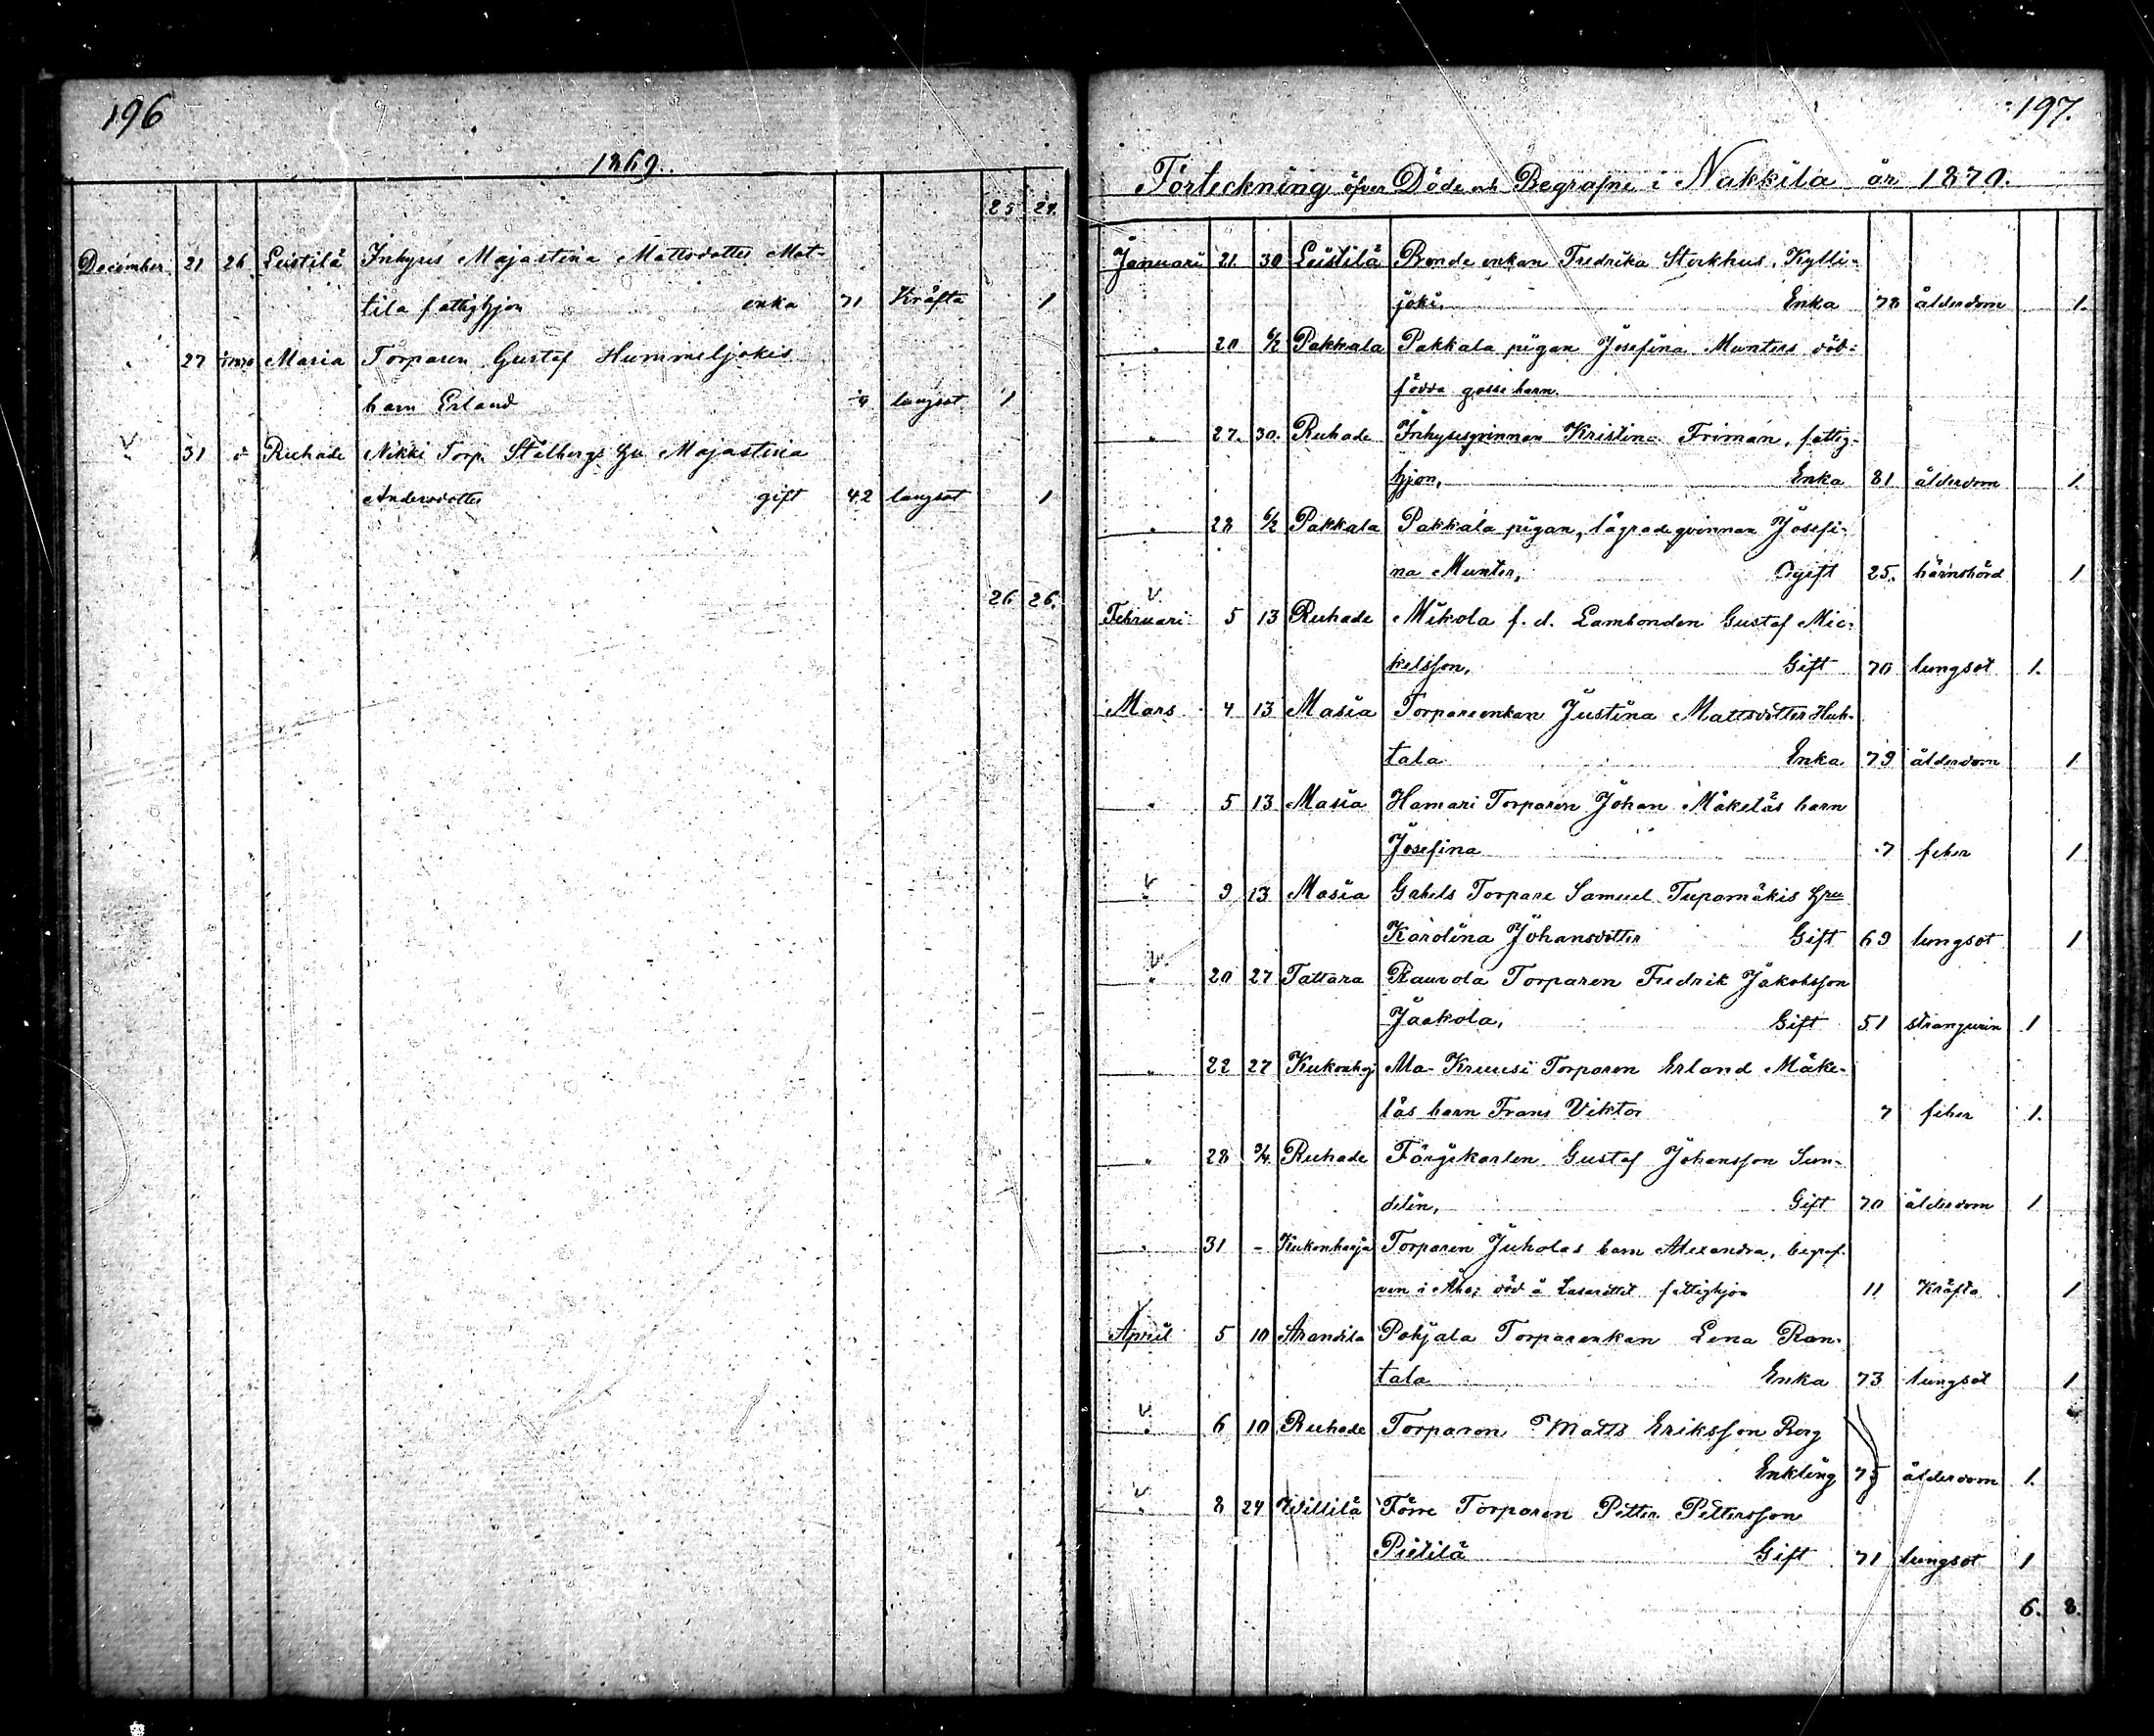 196
1869.
25 24.
December 21 26 Leistilä Inhyses Majastina Mattsdotter Mat-
tila fattighjon enka 71 Kräfta 1
" 27 Masia Torparen Gustaf Hummeljokis
barn Erland lungsot 1
" 31 d Ruhade Nikki Torp. Stålbergs hu Majastina
Andersdotter gift 42 lungsot 1
26 26.
197.
Förteckning öfver Döde och Begrafne i Nakkila år 1870.
Januari 21. 30 Leistilä Bonde enkan Fredrika Storkhus, Kylli-
joki, Enka 78 ålderdom 1.
" 20 6/2 Pakkala Pakkala pigan Josefina Munters död-
födda gosse barn.
" 27. 30. Ruhade Inhysesqvinnan Kristina Friman, fattig-
hjon, Enka 81 ålderdom 1.
" 28 6/2 Pakkala Pakkala pigan, lägrade qvinnan Josefi-
na Munter, Ogift 25. barnsbörd 1
Februari 5 13 Ruhade Mikola f. d. Lambonden Gustaf Mic-
kelsson, Gift 70 lungsot 1.
Mars 4 13 Masia Torpareenkan Justina Mattsdotter Huh-
tala Enka 79 ålderdom 1
" 5 13 Masia Hamari Torparen Johan Mäkeläs barn
Josefina 7 feber 1
" 9 13 Masia Gabels Torpare Samuel Tupamäkis hru
Karolina Johansdotter Gift 69 lungsot 1
" 20 27 Tattara Rauvola Torparen Fredrik Jakobsson
Jaakola, Gift 51 strangurin 1
" 22 27 Kukonhrj Ala-Kruusi Torparen Erland Mäke-
läs barn Frans Viktor 7 feber 1.
" 28 3/4 Ruhade Färgekarlen Gustaf Johansson Sun-
delin, Gift 70 ålderdom 1
" 31 - Kukonharja Torparen Juholas barn Alexandra, begraf-
ven i Åbo; död å Lasarettet fattighjon 11 Kräfta 1
April 5 10 Arantila Pohjala Torparenkan Lena Ran-
tala Enka 73 lungsot 1
" 6 10 Ruhade Torparen Matts Eriksson Berg
Enkling 75 ålderdom 1.
" 8 24 Willilä Förre Torparen Petter Pettersson
Pietilä Gift 71 lungsot 1
6. 8.